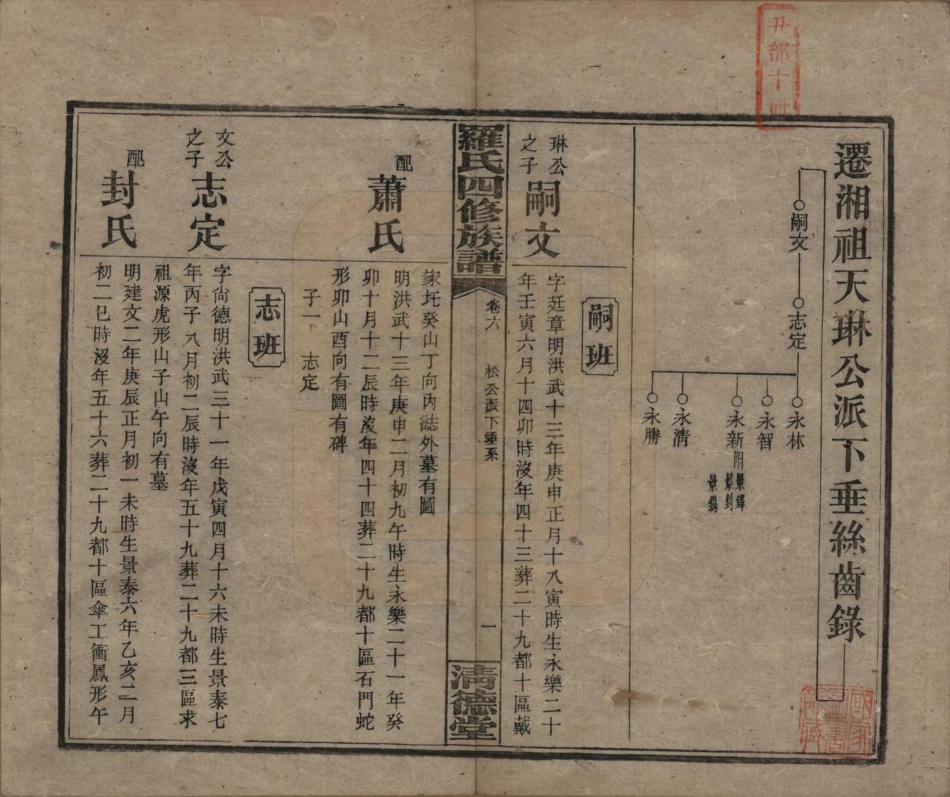 遷湘祖天琳公派下垂絲齒錄
嗣文
志定
永林
永智
永新
附
永清
永勝
嗣班
琳公之子
嗣文
字廷章明洪武十三年庚申正月十八寅時生永樂二十
年壬寅六月十四卯時沒年四十三葬二十九都十區戴
羅氏四修族譜
卷六
松公派下垂系
一
清德堂
家坵癸山丁向內誌外墓有圖
配
蕭氏
明洪武十三年庚申二月初九午時生永樂二十一年癸
卯十月十二辰時沒年四十四葬二十九都十區石門蛇
形卯山酉向有圖有碑
子一 志定
志班
文公之子
志定
字尙德明洪武三十一年戊寅四月十六未時生景泰七
年丙子八月初二辰時沒年五十九葬二十九都三區求
祖源虎形山子山午向有墓
配
封氏
明建文二年庚辰正月初一未時生景泰六年乙亥二月
初二巳時沒年五十六葬二十九都十區傘工衝鳳形午